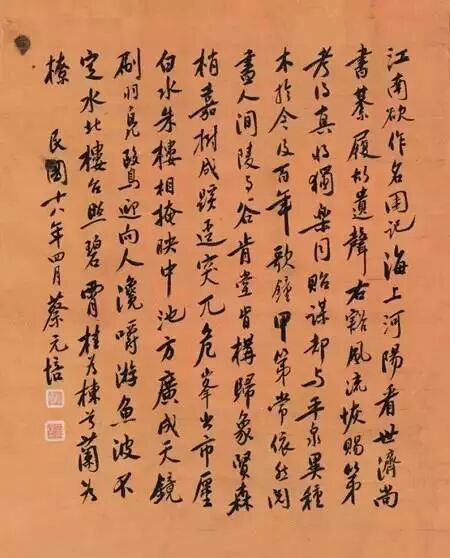 江南欲作名園記海上河陽看世濟尚
書綦履遺聲右豁風流恢賜第
考真獨樂同貽謀却与平泉異種
木於今及百年歌鐘甲第常依然閱
盡人間陵与谷肯堂肯構歸象賢森
梢嘉樹成蹊徑突兀危峯出市廛
白水朱樓相掩映中池方廣成天鏡
刷羽鳧鷖迎向人瀺灂游魚波不
定水北樓台照碧霄桂为棟兮蘭为
橑 民國十八年四月蔡元培